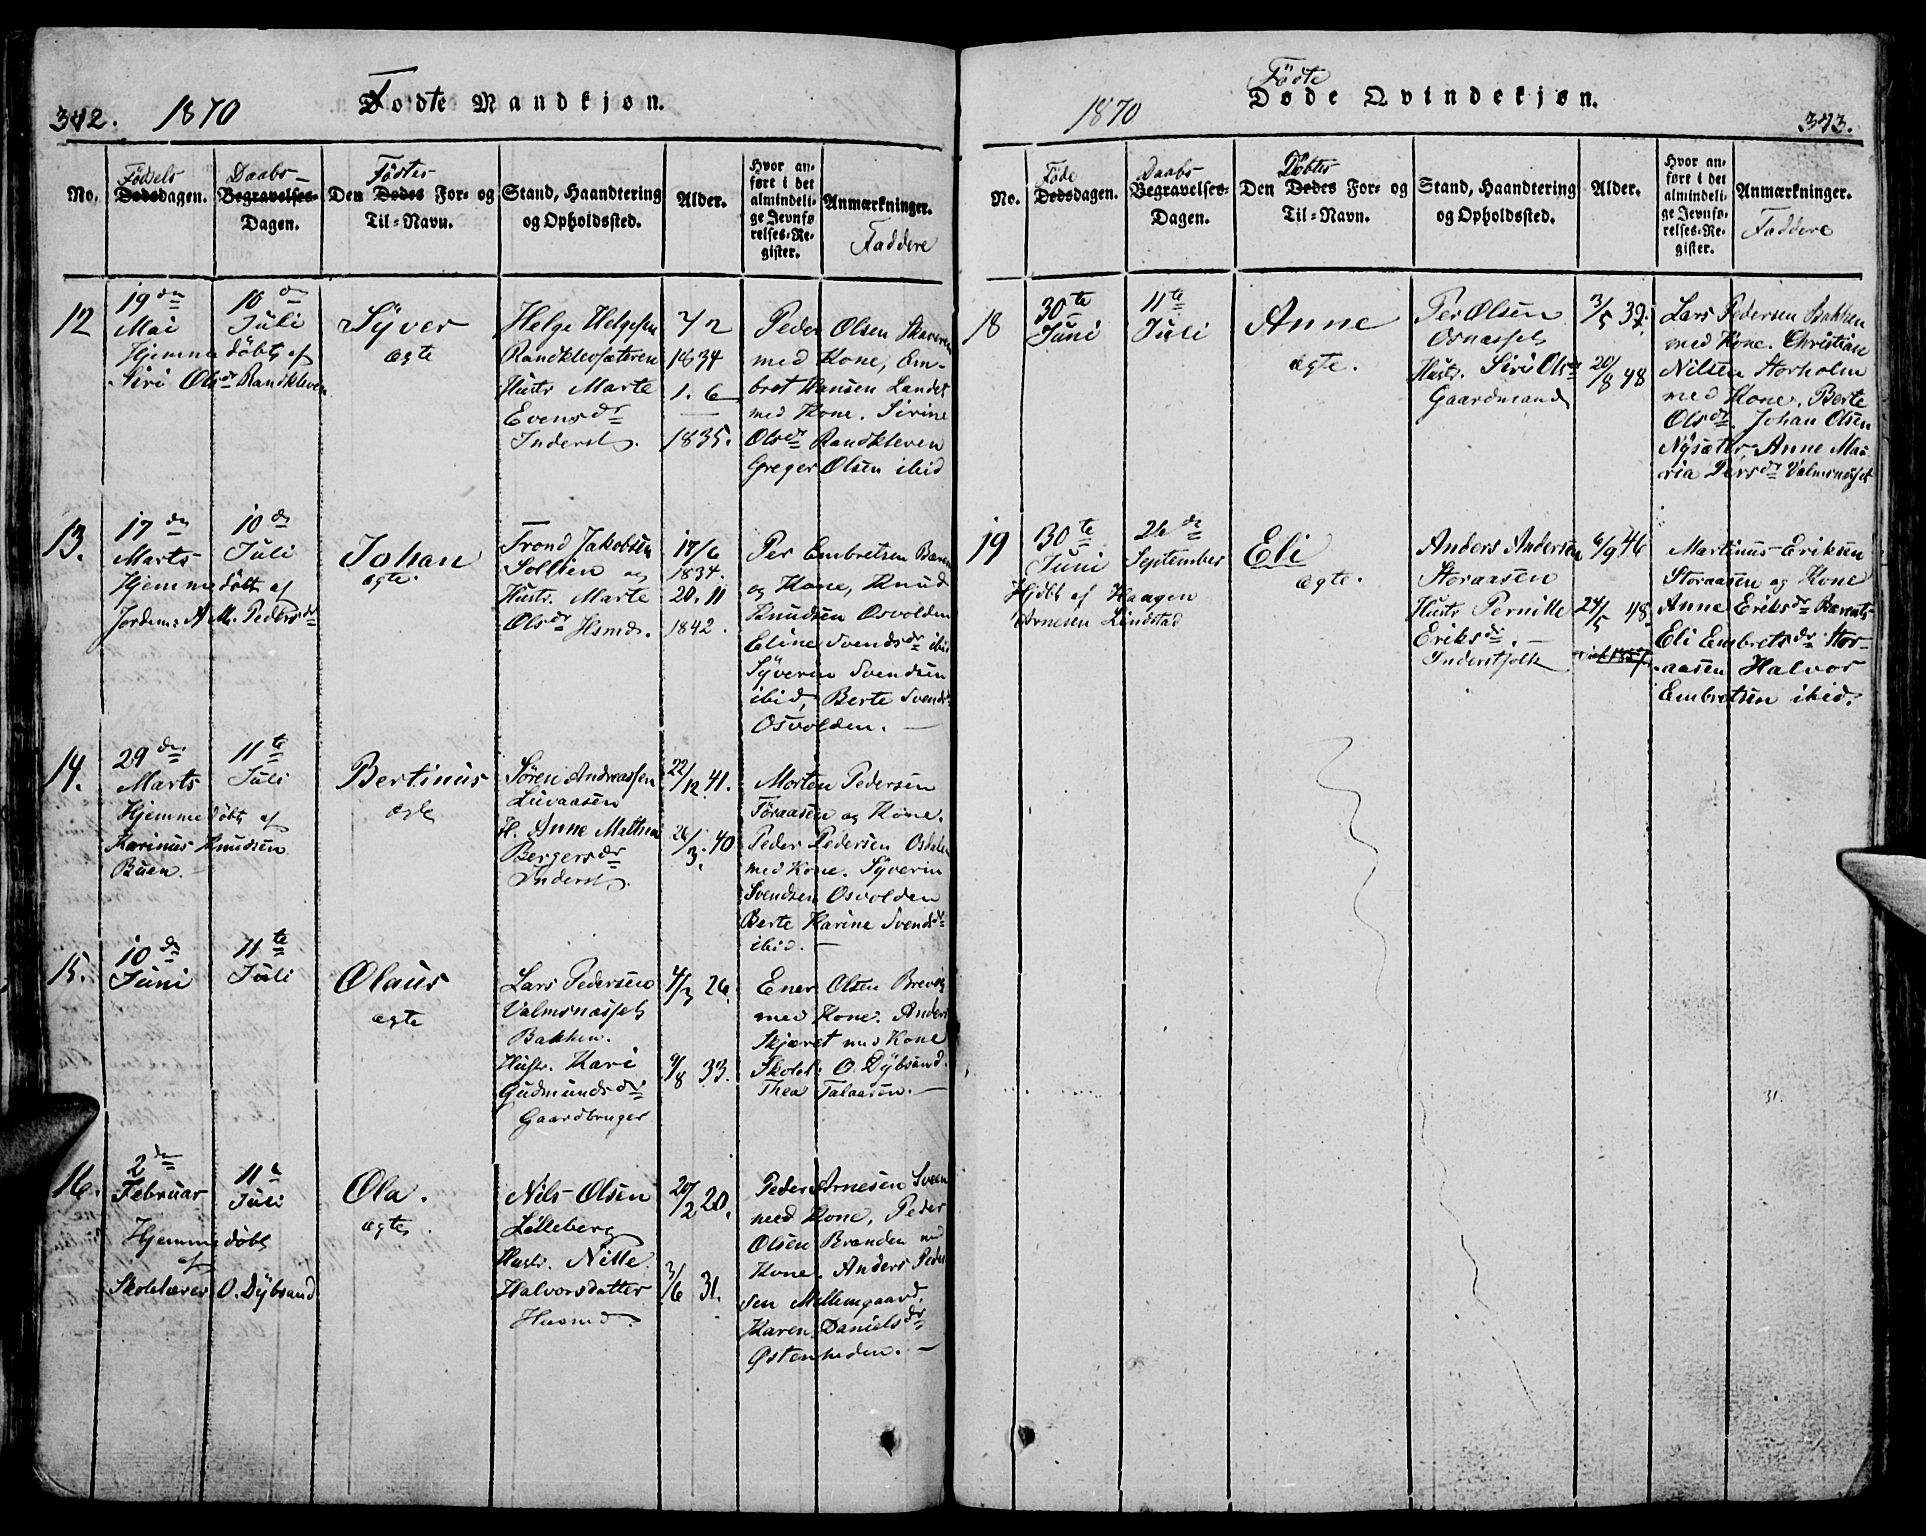 342. 1870 Fodte Mandkjøn.
No. Fødsels Dødsdagen. Daabs- Begravelses- Dagen. Den Fødtes Dødes For- og Til-Navn. Stand, Haandtering og Opholdssted. Alder. Hvor anført i det almindelige Jevnførelses-Register. Anmærkninger. Faddere
12
19de
Mai
Hjemmedøbt af
Siri Olsdr Randkleven
10de
Juli
Syver
ægte
Helge Helgesen
Randklevsæteren
Hustr Marte
Evensdr
Inderst
7/2
1834
1. 6
1835.
Peder Olsen Skaaren
med Kone, Em-
bret Hansen Landet
med Kone. Sirine
Olsdr Randkleven
Greger Olsen ibid
13.
17de
Marts
Hjemmedøbt af
Jordem: A M. Pedersdr
10de
Juli
Johan
ægte.
Trond Jakobsen
Sollien og
Hustr. Marte
Olsdr Hsmd.
17/6
1834.
20. 11
1842.
Per Embretsen
og Kone, Knud
Knudsen Osvolden
Eline Svendsdr ibid
Syverin Svendsen
ibid, Berte Svendsdr
Osvolden. —
14.
29de
Marts
Hjemmedøbt af
Karinus Knudsen
Buen.
11te
Juli
Bertinus
ægte
Søren Andreassen
Luvaasen
H. Anne Mathea
Bergersdr
Inderst
22/12 41.
26/3. 40
Morten Pedersen
Føraasen og Kone.
Peder Pedersen Osdalen
med Kone. Syverin
Svendsen Osvolden
Berte Karine Svendsdr
ibid. —
15.
10de
Juni
11te
Juli
Olaus
ægte
Lars Pedersen
Valmsnæsset
Bakken.
Hustr. Kari
Gudmundsdr
Gaardbruger
4/3 26.
9/8 33.
Ener Olsen Brevig
med Kone. Anders
Skjæret med Kone
Skolel: O. Dybsand.
Thea Talaasen. —
16.
2de
Februar
Hjemmedøbt
af
Skolelærer O. Dybsand
11te
Juli
Ola.
ægte
Nils Olsen
Lilleberg
Hustr. Nille
Halvorsdatter
Husmd.
20/2 20.
3/6 31.
Peder Arnesen Sveen
med Kone, Peder
Olsen Brænden med
Kone. Anders Peder
sen Mellemgaard.
Karen Danielsdr
Østenheden. —
1870 Fødte Døde Qvindekjøn. 343.
No. Føde Dødsdagen. Daabs Begravelses- Dagen. Den Døbtes Dødes For- og Til-Navn. Stand, Haandtering og Opholdssted. Alder. Hvor anført i det almindelige Jevnførelses-Register. Anmærkninger. Faddere
18
30te
Juni
11te
Juli
Anne
ægte.
Per Olsen
Osnæsset
Hustr. Siri Olsdr
Gaardmand
3/5 39.
20/8 48
Lars Pedersen Bakken
med Kone. Christian
Nilsen Storholm
med Kone. Berte
Olsdr. Johan Olsen
Nysæter. Anne Ma-
ria Persdr Valmsnæsset
19
30te
Juni
Hjdbt af Haagen
Arnesen Lindstad
26de
September
Eli
ægte.
Anders Andersen
Storaasen
Hustr Pernille
Eriksdr. —
Inderstfolk
6/9 46
24/5 48.
Martinus Eriksen
Storaasen og Kone
Anne Eriksdr
Eli Embretsdr Stor-
aasen Halvor
Embretsen ibid.
31.